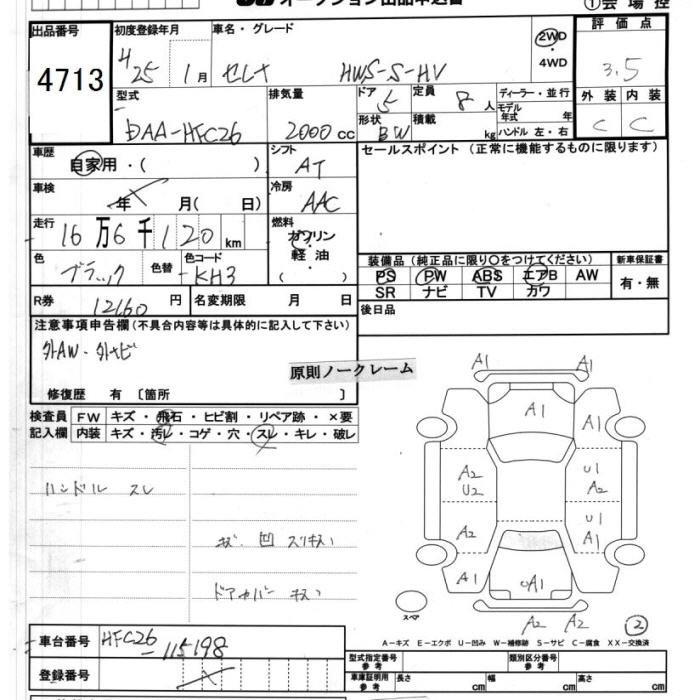 オークション出品申込書
①会場控
出品番号
4713
初度登録年月
H 25 1月
車名・グレード
セレナ HWS-S-HV
2WD
・4WD
評価点
3.5
外装 内装
C C
型式
DAA-HFC26
排気量
2000 cc
ドア
5
定員
8 人
ディーラー・並行
モデル年式 年
形状
BW
積載
kg
ハンドル 左・右
車歴
自家用・( )
シフト
AT
車検
年 月( 日)
冷房
AAC
走行
16万6千120km
燃料
ガソリン
・軽油・
( )
色
ブラック
色替
色コード
KH3
R券
12160円
名変期限 月 日
セールスポイント(正常に機能するものに限ります)
装備品(純正品に限り○をつけてください)
PS PW ABS エアB AW
SR ナビ TV カワ
新車保証書
有・無
後日品
注意事項申告欄(不具合内容等は具体的に記入して下さい)
外AW・外ナビ
原則ノークレーム
修復歴 有〔箇所 〕
検査員
記入欄
FW キズ・飛石・ヒビ割・リペア跡・×要
内装 キズ・汚レ・コゲ・穴・スレ・キレ・破レ
ハンドル スレ
キズ 凹 スリキズ
ドアカバー キズ
A1 A1
A1
A1
A2
U2
U1
A2
A2
U1
A1
A1
UA1
A1
A2 A2
②
スペア
A-キズ E-エクボ U-凹み W-補修跡 S-サビ C-腐食 XX-交換済
車台番号
HFC26-115198
登録番号
型式指定番号
類別区分番号
車庫証明用
長さ cm 幅 cm 高さ cm